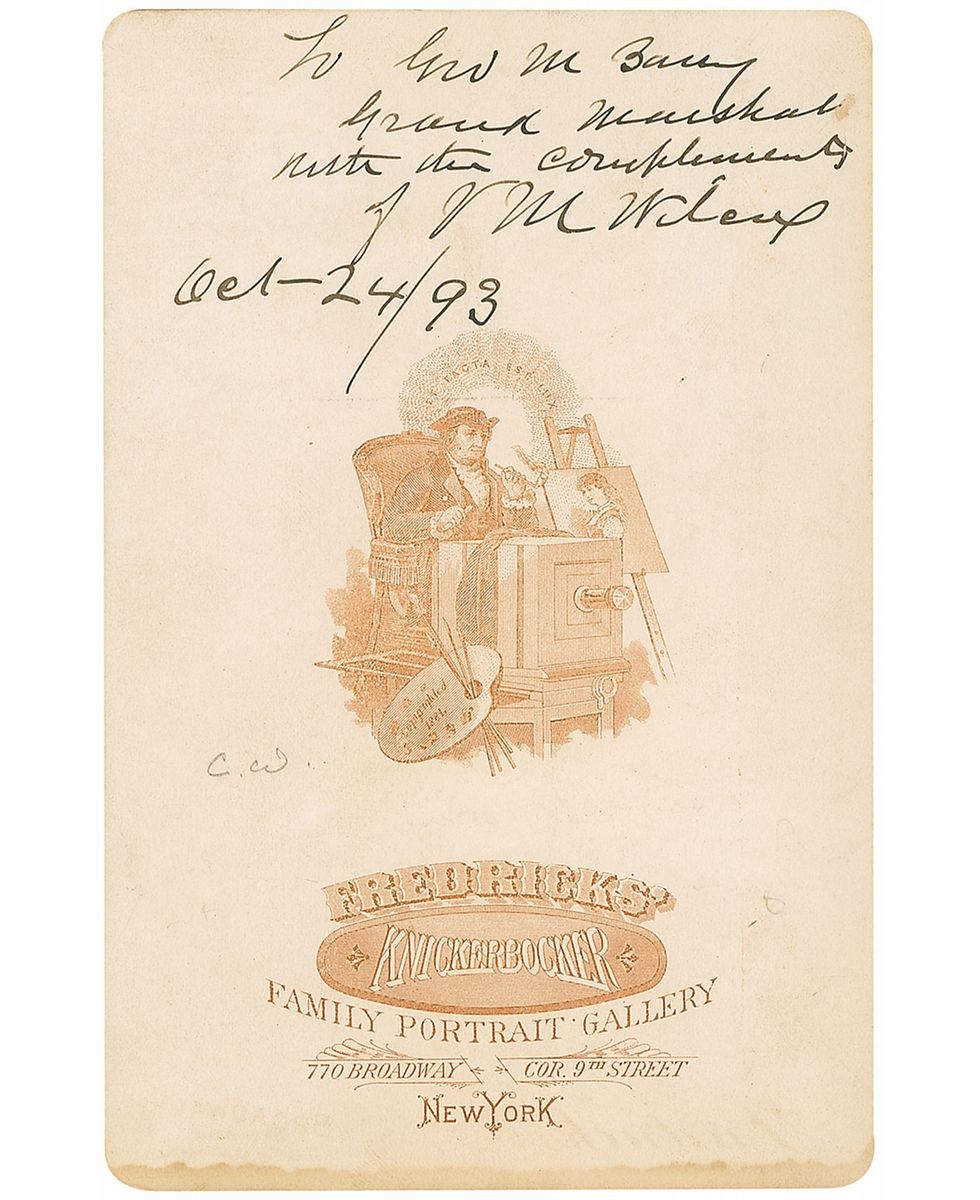 To Geo M Barry
Grand Marshal
with the complements
of V M Wilcox
Oct-24/93
FACTA EST
Copyrighted
1881.
C.W.
FREDRICKS'
KNICKERBOCKER
FAMILY PORTRAIT GALLERY
770 BROADWAY COR. 9TH STREET
NEW YORK